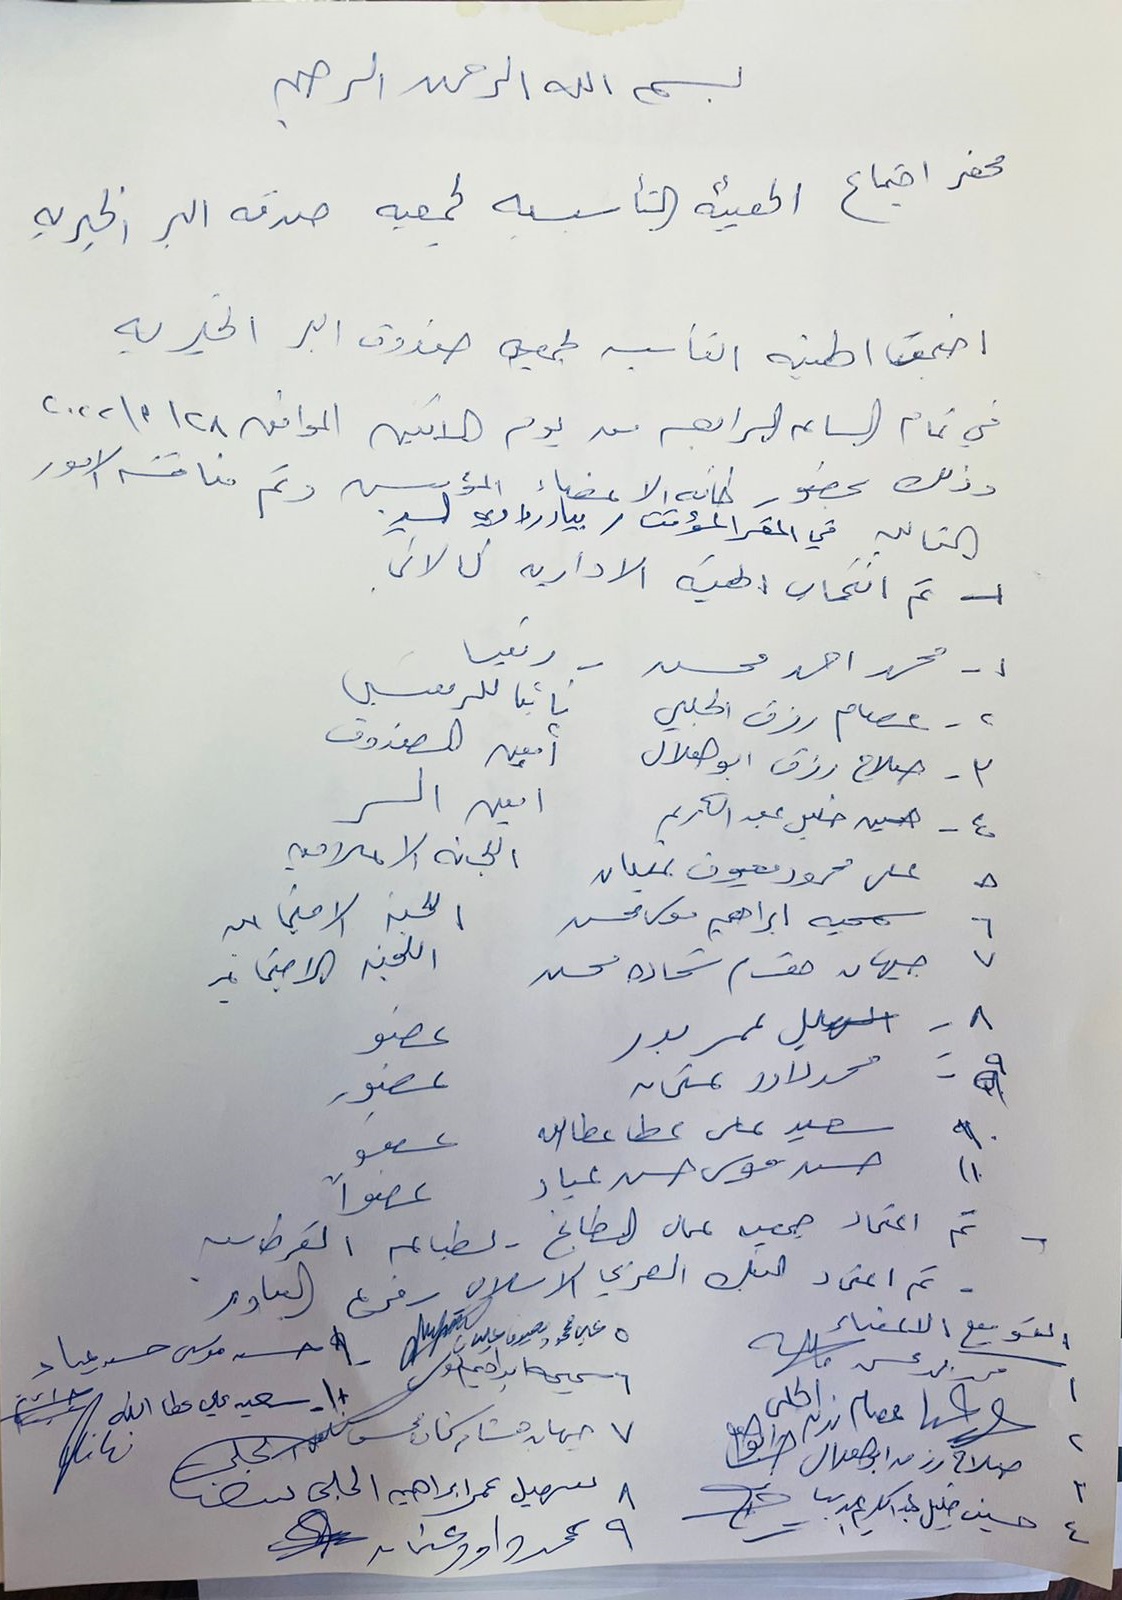 بسم الله الرحمن الرحيم
محضر اجتماع الهيئة التأسيسيه لجمعيه صندقه البر الخيريه
اجتمعت الهيئه التأسيسيه لجمعيه صندوق البر الخيريه
في تمام الساعه الرابعه من يوم الاثنين الموافق ٢٨/٣/٢٠٢٢
وذلك بحضور كافه الاعضاء المؤسسين وتم مناقشه الامور
التاليه في المقر المؤقت / بيادر وادي السير
١- تم انتخاب الهيئه الاداريه كالاتي
١- محمد احمد محسن - رئيسا
٢- عصام رزق الحلبي نائبا للرئيس
٣- صلاح رزق ابوهلال أمين الصندوق
٤- حسين خليل عبد الكريم امين السر
٥ علي محمود معيوف عليان اللجنه الاعلاميه
٦ سميه ابراهيم موسى محسن اللجنه الاجتماعيه
٧ جيهان هشام شحاده محسن اللجنه الاجتماعيه
٨- السهيل عمر بدر عضو
٩- محمد داود عثمان عضو
١٠ سعيد علي عطا عطاالله عضو
١١ حسن موسى حسن عياد عضوا
- تم اعتماد جمعيه عمال المطابع - لطباعه القرطاسيه
- تم اعتماد البنك العربي الاسلامي فرع البيادر
التوقيع الاعضاء
١
٢ عصام رزق الحلبي
٣ صلاح رزق ابوهلال
٤ حسين خليل عبد الكريم
٥ علي محمود معيوف عليان
٦ سميه ابراهيم موسى
٧ جيهان هشام شحاده محسن
٨ سهيل عمر ابراهيم الحلبي
٩ محمد داود عثمان
٩- حسن موسى حسن عياد
١٠- سعيد علي عطا الله